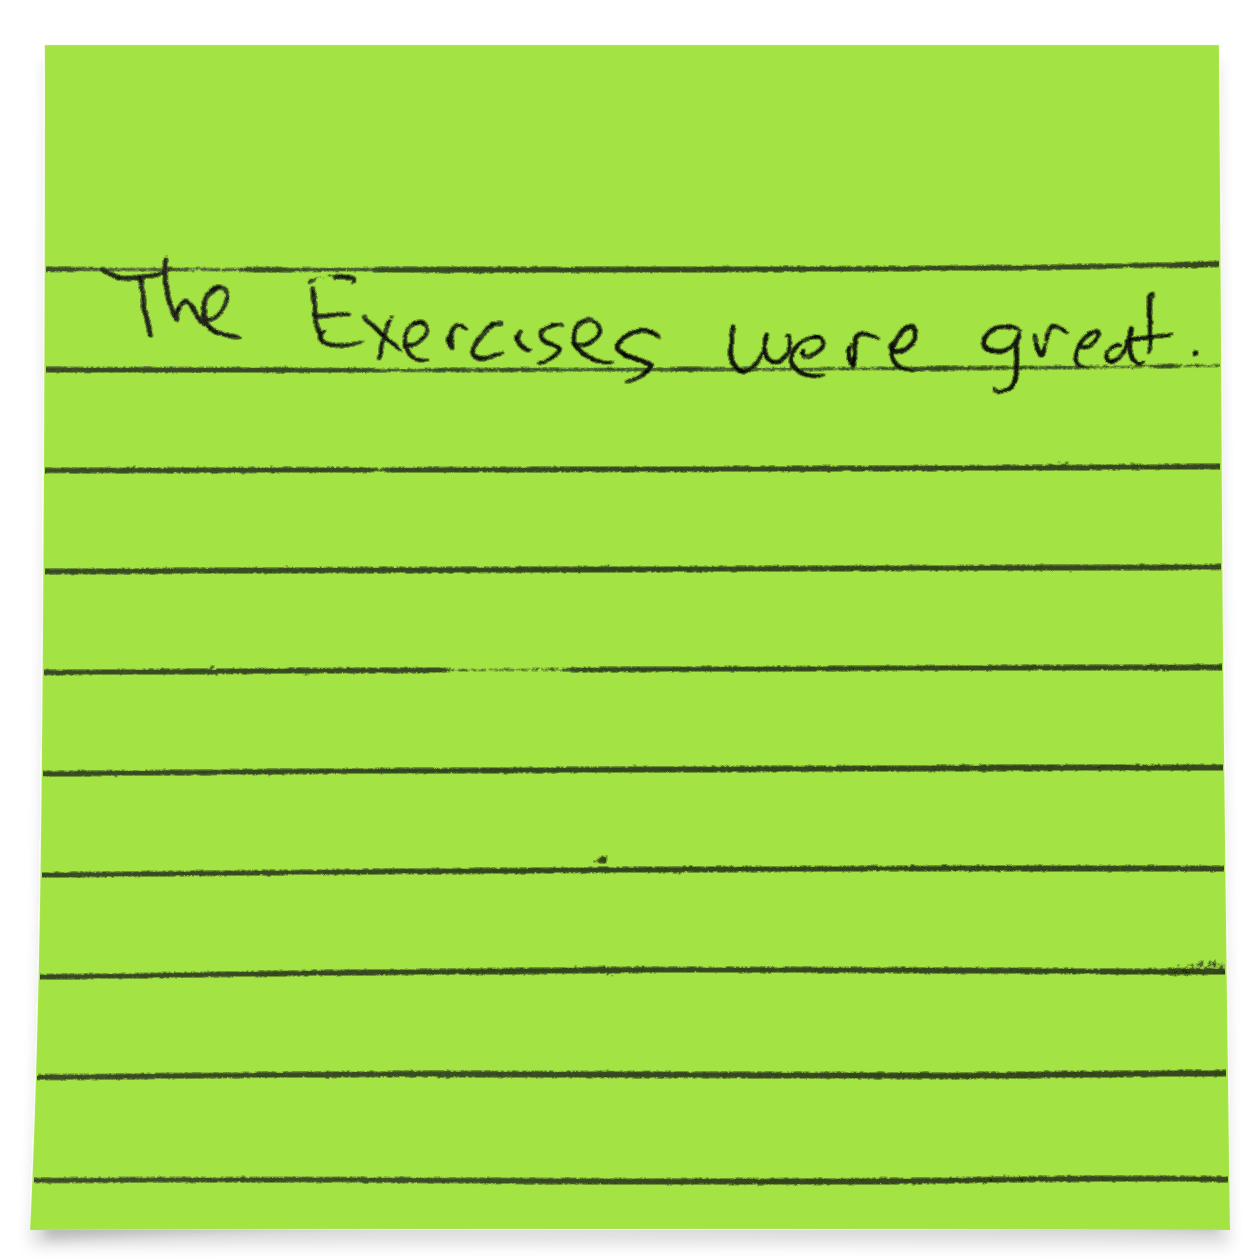 The Exercises were great.